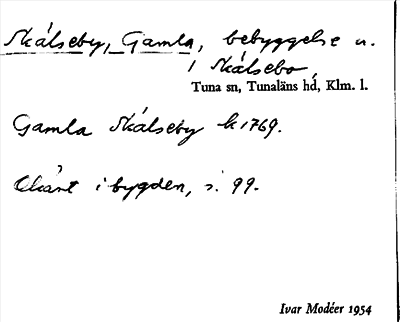 Skälseby, Gamla, bebyggelse u.
/ Skälsebo
Tuna sn, Tunaläns hd, Klm. l.
Gamla Skälseby k 1769.
Okänt i bygden, s. 99.
Ivar Modéer 1954